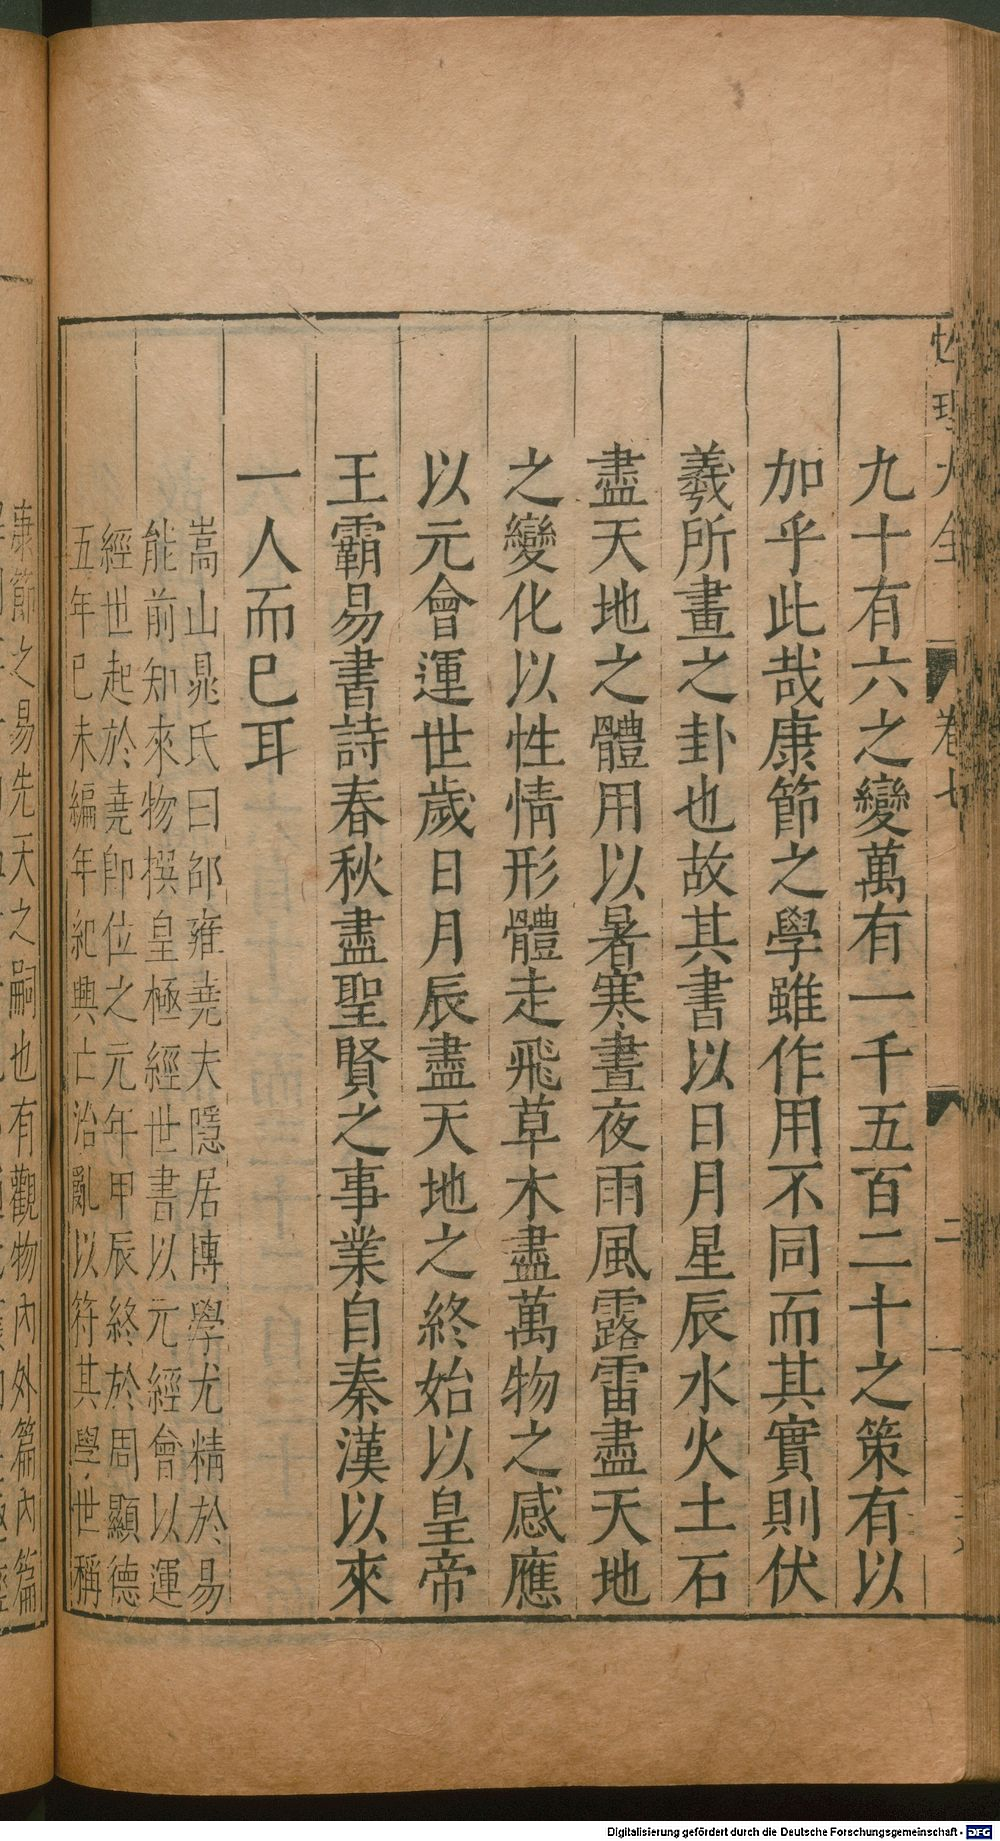 性理大全
卷七
二
九十有六之變萬有一千五百二十之策有以
加乎此哉康節之學雖作用不同而其實則伏
羲所畫之卦也故其書以日月星辰水火土石
盡天地之體用以暑寒晝夜雨風露雷盡天地
之變化以性情形體走飛草木盡萬物之感應
以元會運世歲日月辰盡天地之終始以皇帝
王霸易書詩春秋盡聖賢之事業自秦漢以來
一人而巳耳
嵩山晁氏曰邵雍堯夫隱居博學尤精於易
能前知來物撰皇極經世書以元經會以運
經世起於堯卽位之元年甲辰終於周顯德
五年巳未編年紀興亡治亂以符其學世稱
康節之易先天之嗣也有觀物內外篇內篇
Digitalisierung gefördert durch die Deutsche Forschungsgemeinschaft - DFG